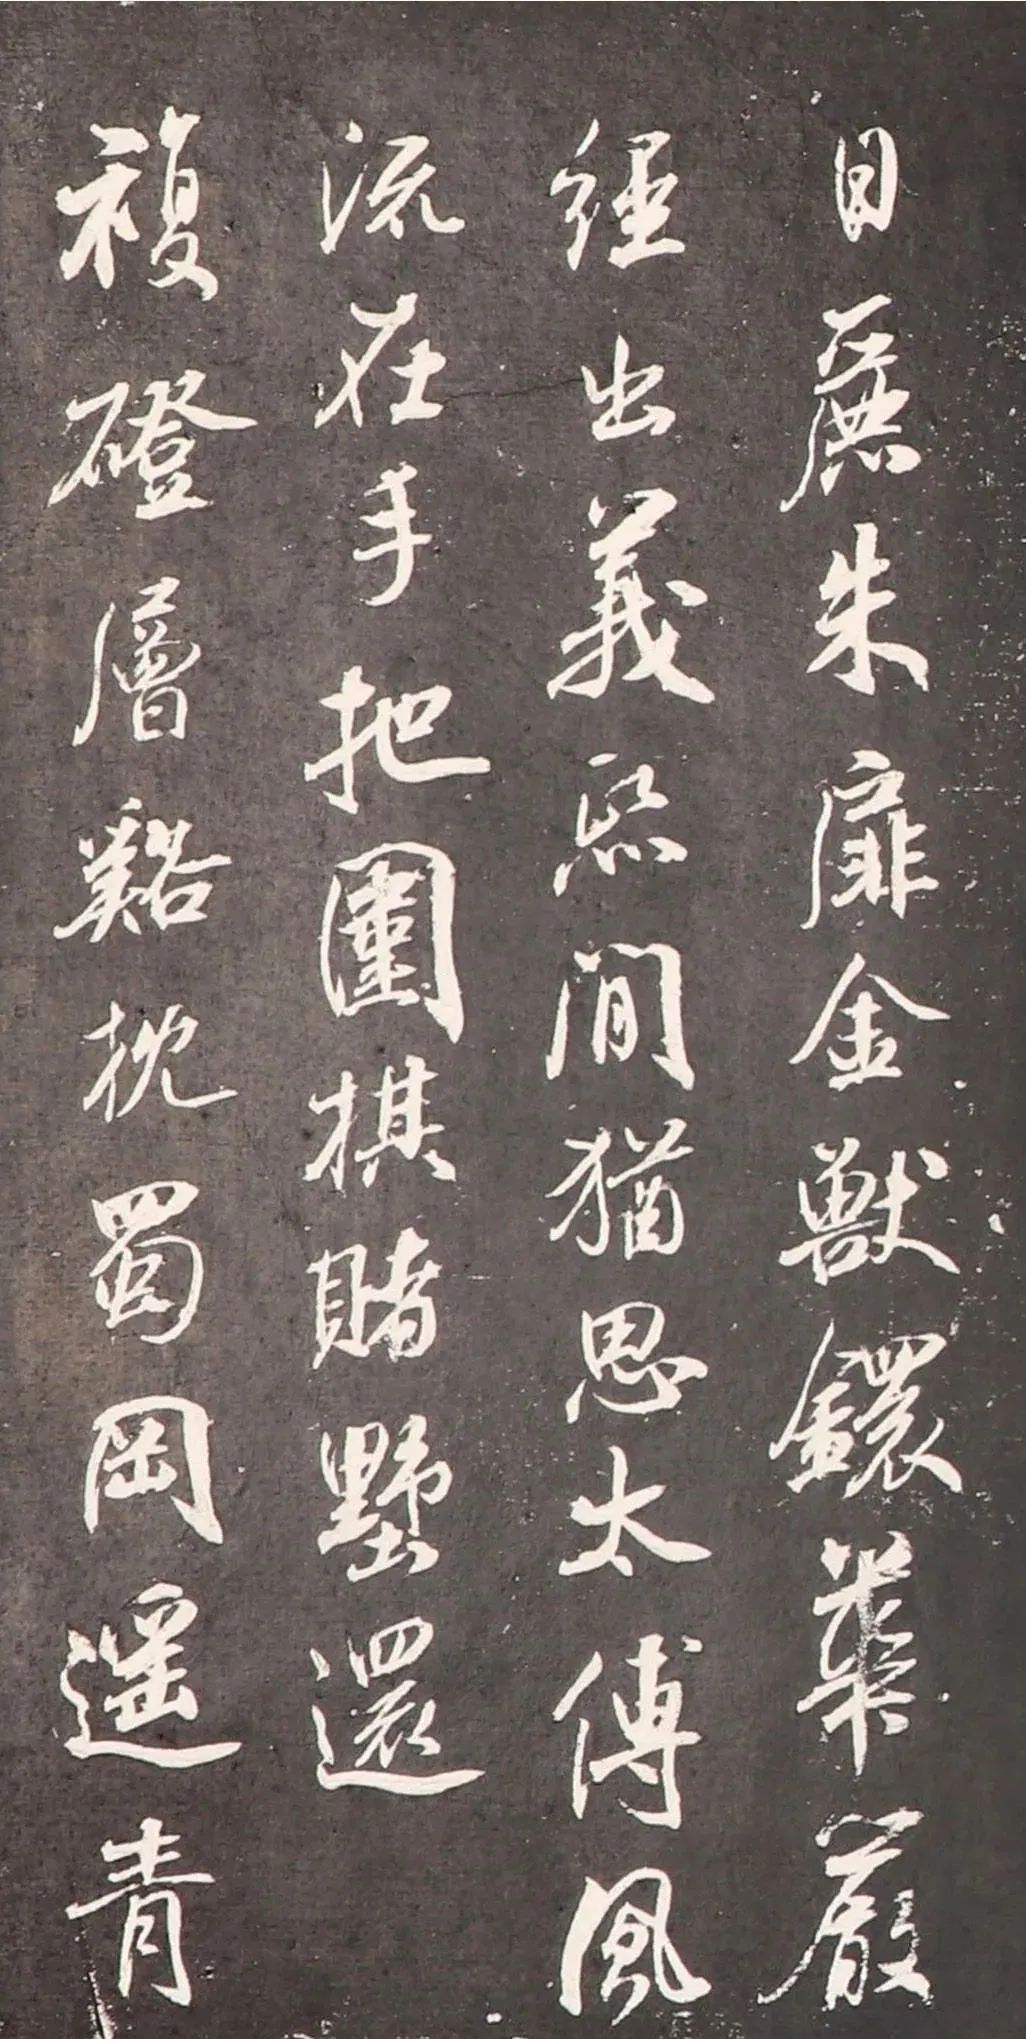 日麗朱扉金獸鐶華嚴
經出義熙間猶思太傅風
流在手把圍棋賭墅還
複磴層谿枕蜀岡遥青